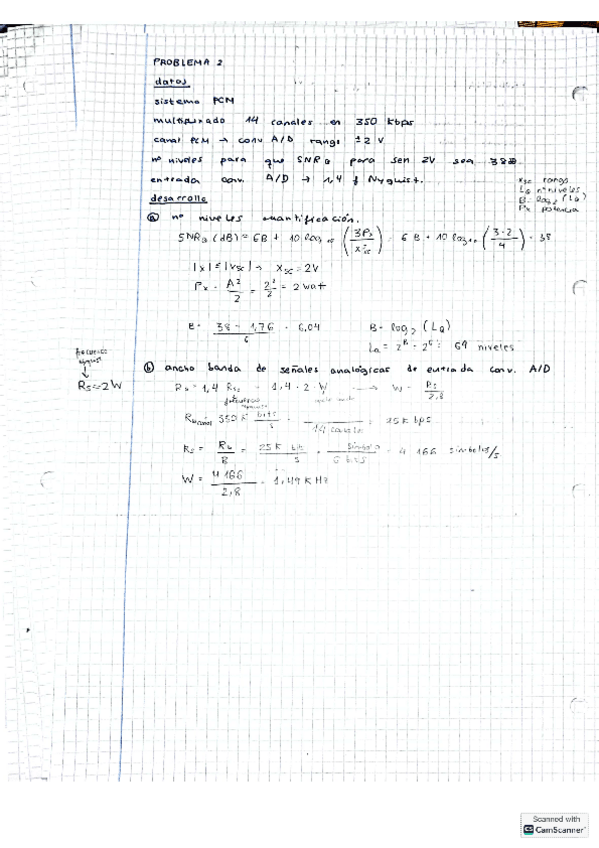 PROBLEMA 2
datos
sistema PCM
multiplexado 14 canales en 350 kbps
canal PCM → conv A/D rango ±2 V
nº niveles para que SNRQ para sen 2V sea 38
entrada conv. A/D → 1,4 f Nyquist.
xsc rango
LQ nº niveles
B = log2 (LQ)
Px potencia
desarrollo
ⓐ nº niveles cuantificación.
SNRQ (dB) = 6B + 10 log10 (3Px / x²sc) = 6B + 10 log10 (3·2 / 4) = 38
|x| ≤ |xsc| → xsc = 2V
Px = A² / 2 = 2² / 2 = 2 wat
B = 38 - 1,76 / 6 = 6,04
B = log2 (LQ)
LQ = 2^B = 2^6 = 64 niveles
ⓑ ancho banda de señales analógicas de entrada conv. A/D
Rs = 2W
Rs = 1,4 Rs = 1,4 · 2 · W → W = Rs / 2,8
350 K bits / s · / 14 canales = 25 K bps
Rs = Rb / B = 25 K bit / s · símbolo / 6 bits = 4 166 símbolos/s
W = 4 166 / 2,8 = 1,49 K Hz
Scanned with
CS CamScanner